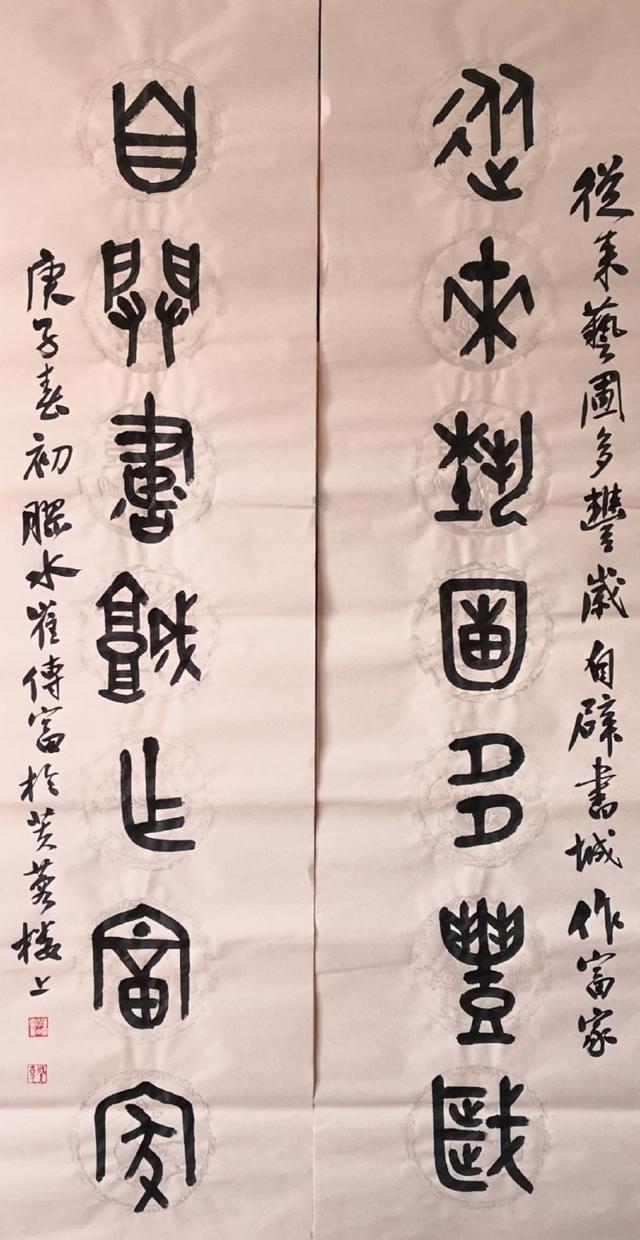 從来藝圃多豐歲自辟書城作富家
從來藝圃多豐歲
自闢書城作富家
庚子春初膠水崔傳富於芙蓉樓上